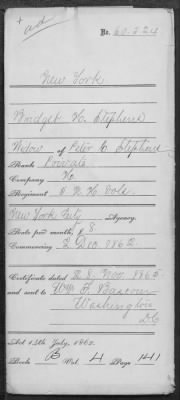 + ad
No. 60.324
New York
Bridget H. Stephens
Widow of Peter C Stephens
Rank Private
Company
Regiment N.Y. Vols.
New York City Agency.
Rate per month, $8
Commencing 2 Dec. 1862
Certificate dated 28. Nov. 1865
and sent to Wm F Bascom
Washington
D.C.
Act 14th July, 1862.
Book B Vol. 4 Page 141